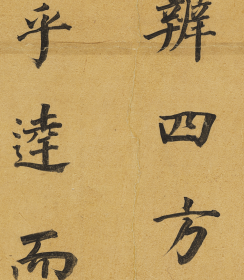 辨四方
乎逵而